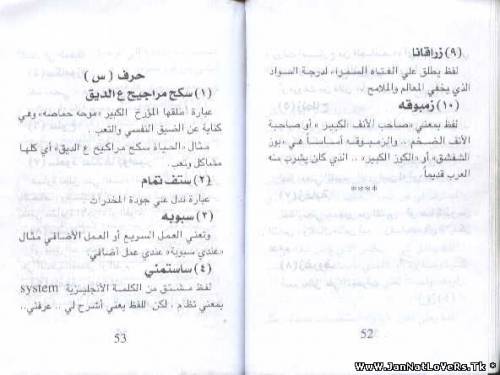 (٩) زراقانا
لفظ يطلق علي الفتاه السمراء لدرجة السواد
الذي يخفي المعالم والملامح
(١٠) زمبوقه
لفظ بمعني «صاحب الأنف الكبير» أو صاحبة
الأنف الضخم.. والزمبوقه أساساً هي «بوز
الشفشق» أو «الكوز الكبير».. الذي كان يشرب منه
العرب قديماً.
****
52
حرف (س)
(١) سكح مراجيح ع الديق
عبارة أطلقها المؤرخ الكبير «موحه حماصه» وهي
كناية عن الضيق النفسي والتعب.
مثال «الحياة سكح مراكيح ع الديق» أي كلها
مشاكل وتعب.
(٢) ستف تمام
عبارة تدل علي جودة المخدرات
(٣) سبوبه
وتعني العمل السريع أو العمل الأضافي مثال
«عندي سبوبة» عندي عمل أضافي
(٤) ساستمني
لفظ مشتق من الكلمة الأنجليزية system
بمعني نظام، لكن اللفظ يعني أشرح لي.. عرفني..
53
WwW.JanNatLoVeRs.Tk *